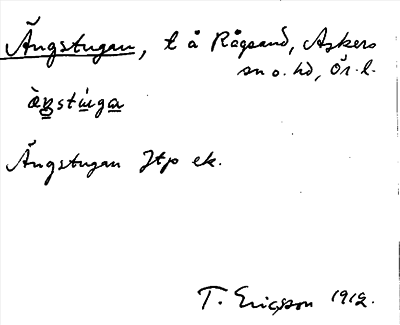 Ängstugan, t å Rågsand, Askers
sn o. hd, Ör. l.
ä̀ŋstùga
Ängstugan Jtp ek.
T. Ericsson 1912.